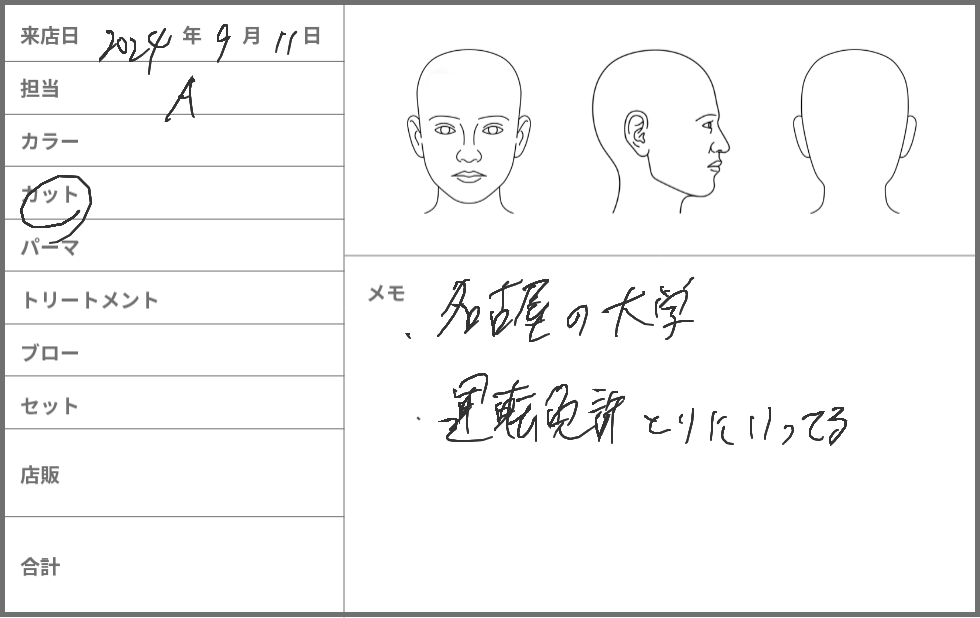 来店日 2024 年 9 月 11 日
担当 A
カラー
カット
パーマ
トリートメント
ブロー
セット
店販
合計
メモ
・名古屋の大学
・運転免許とりにいってる